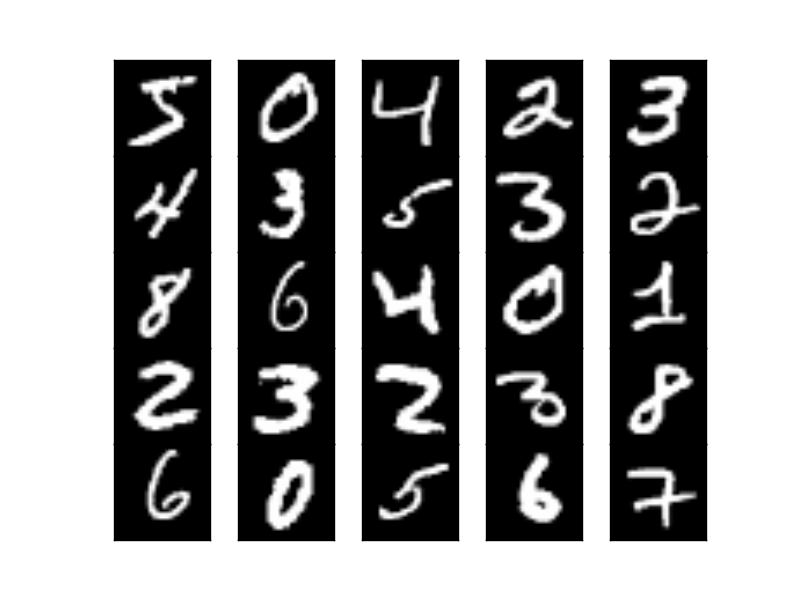 5 0 4 2 3
4 3 5 3 2
8 6 4 0 1
2 3 2 3 8
6 0 5 6 7